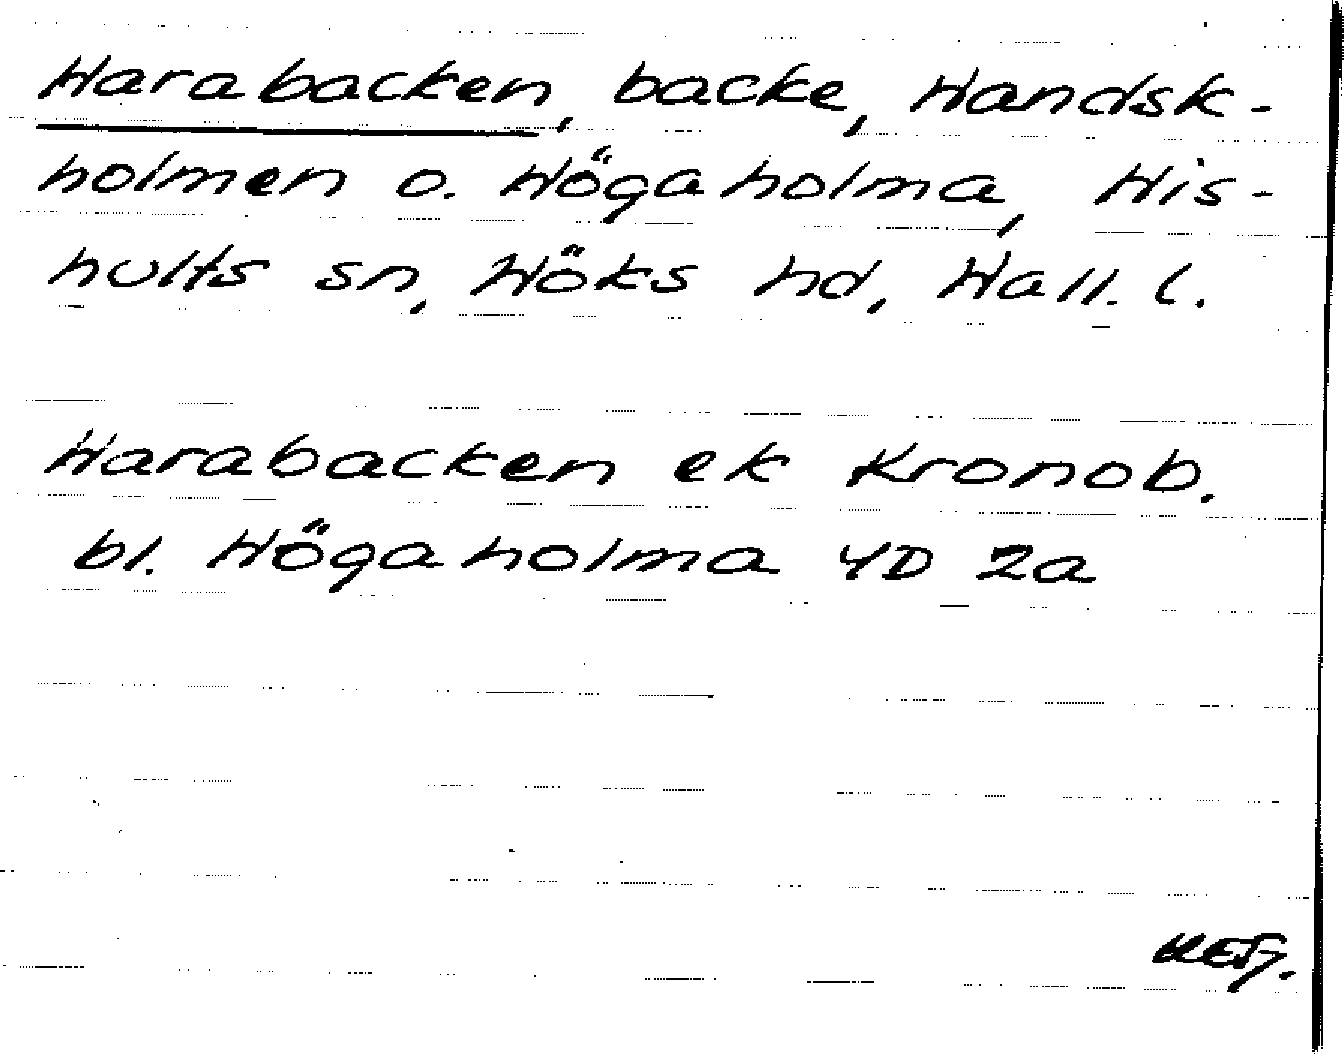 Harabacken, backe, Handsk-
holmen o. Högaholma, His-
hults sn, Höks hd, Hall. l.
Harabacken ek Kronob.
bl. Högaholma 4D 2a